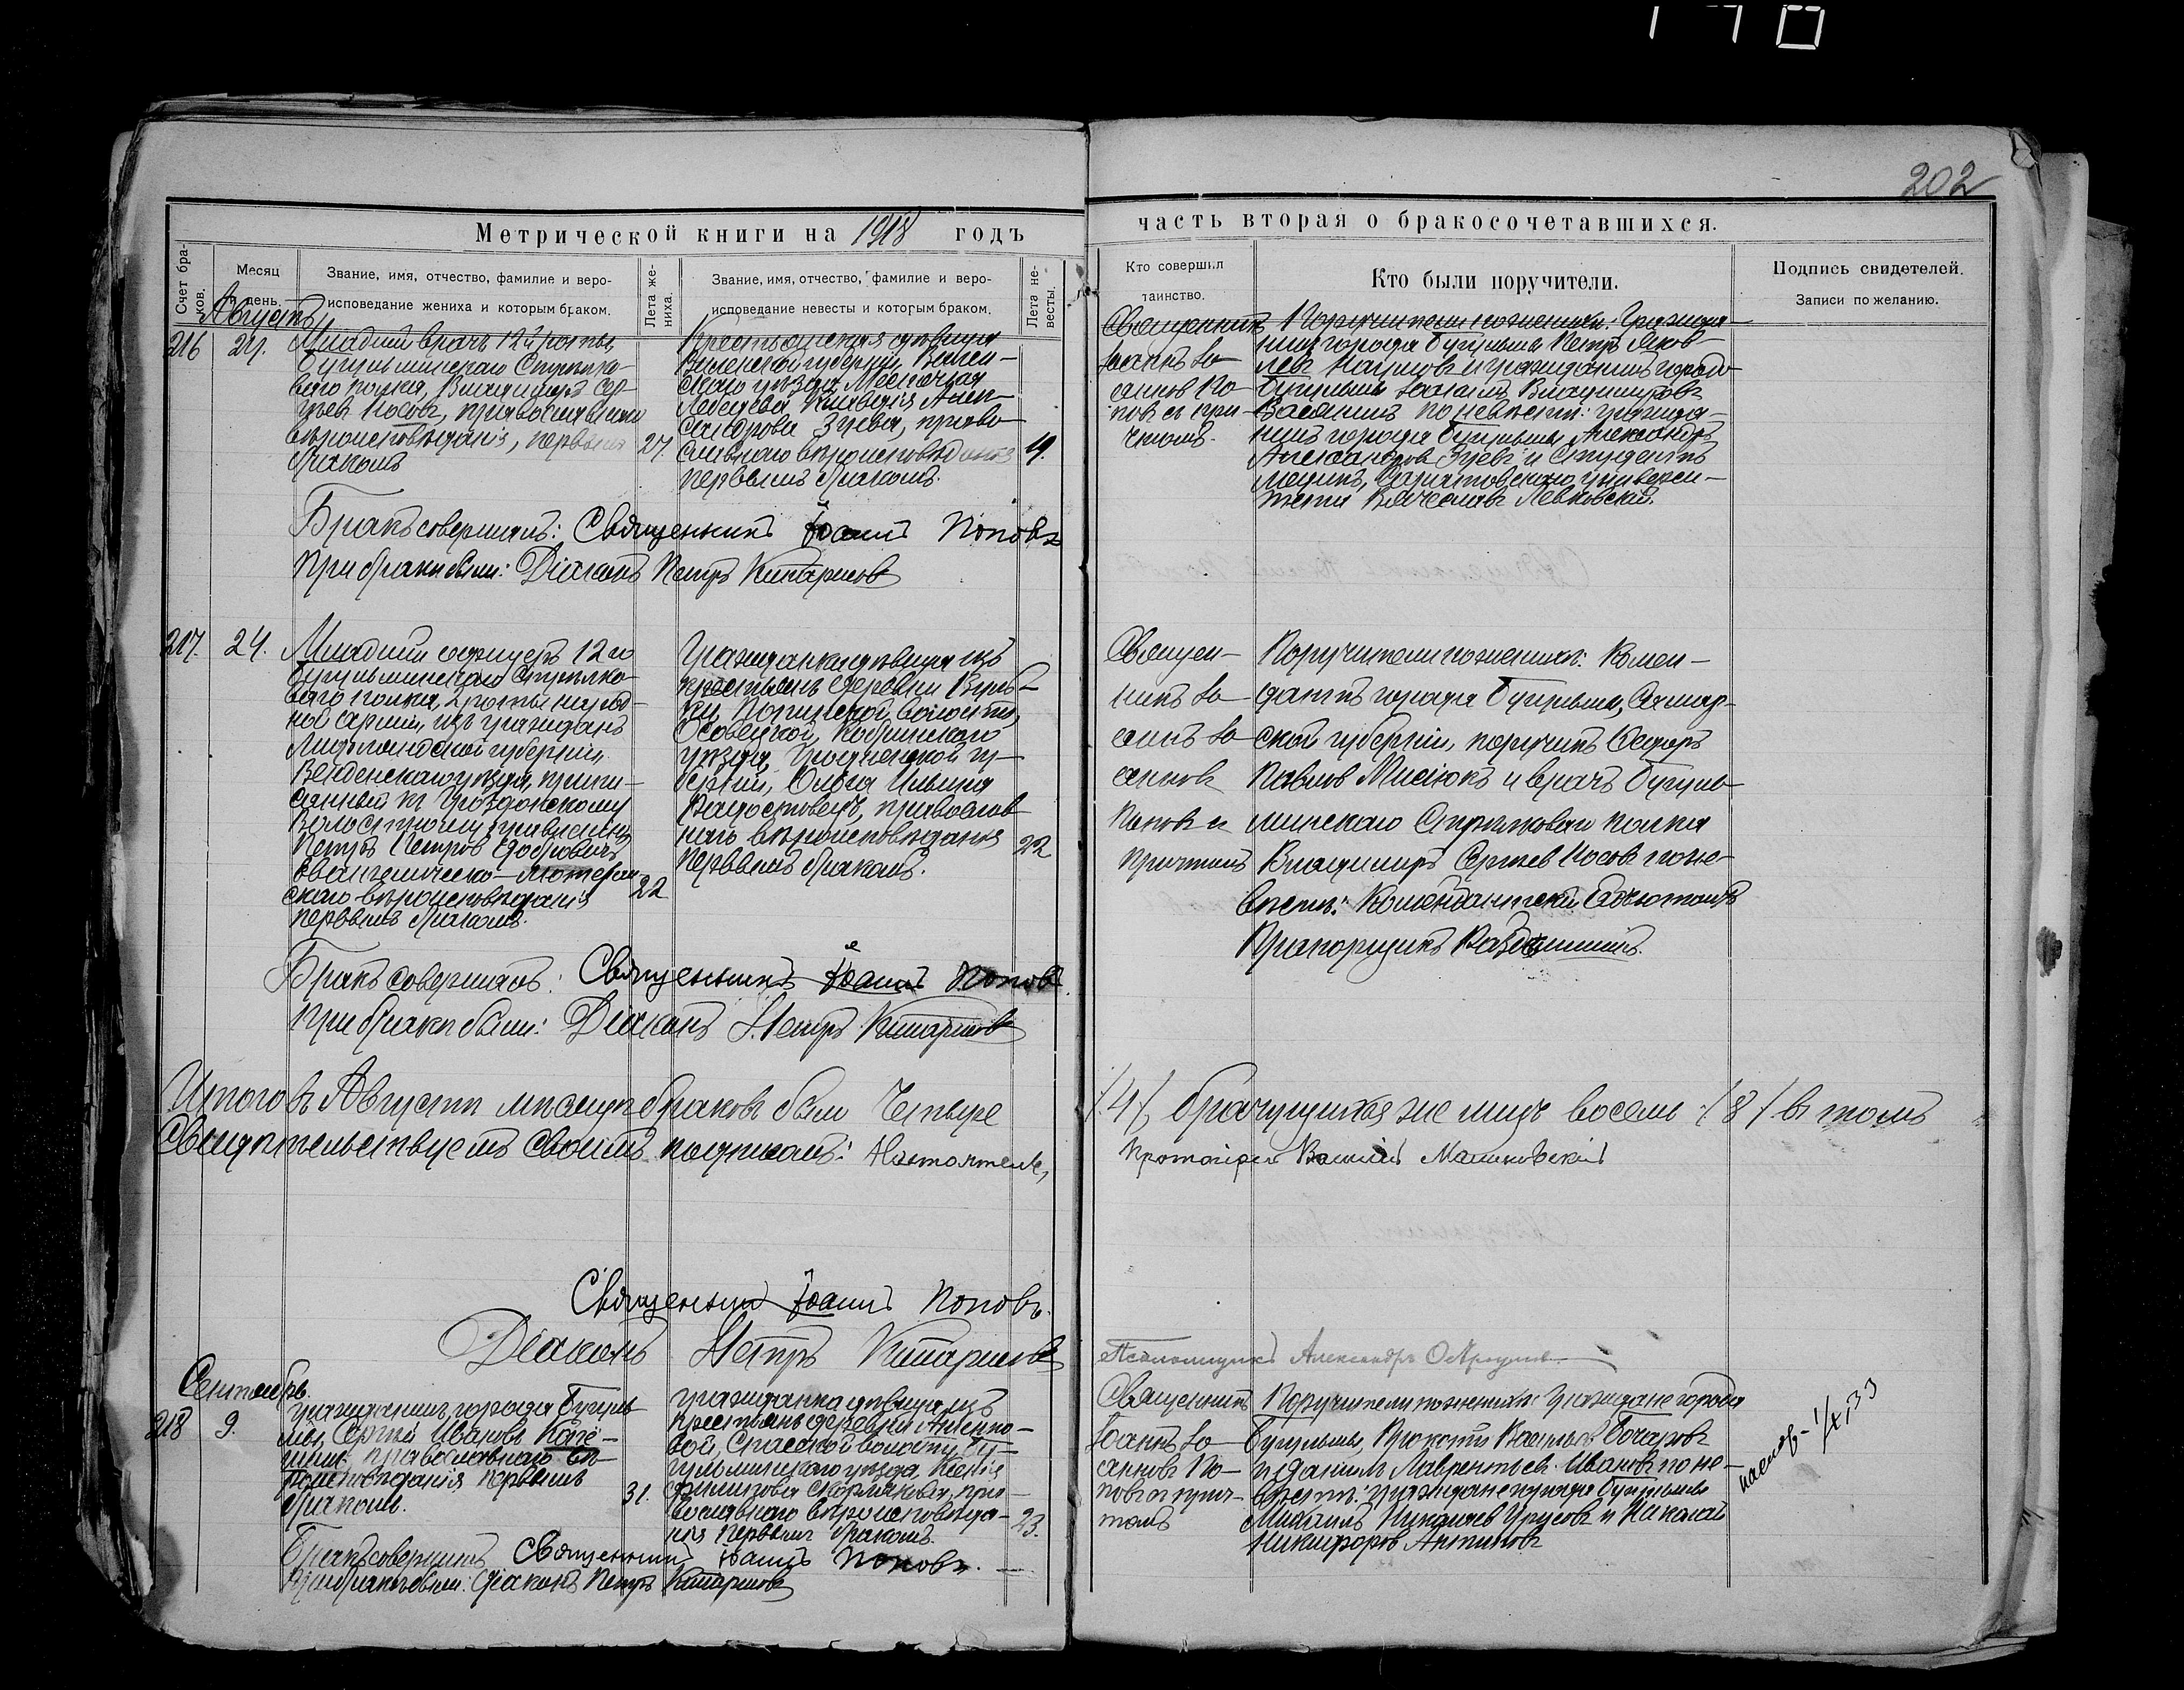 202
Метрической книги на 1918 годъ
часть вторая о бракосочетавшихся.
Счет браков.
Месяц и день.
Звание, имя, отчество, фамилие и вероисповедание жениха и которым браком.
Лета жениха.
Звание, имя, отчество, фамилие и вероисповедание невесты и которым браком.
Лета невесты.
Кто совершил таинство.
Кто были поручители.
Подпись свидетелей.
Записи по желанию.
Августъ
216
Младшій врачъ 12й роты
Бугульминскаго Стрѣлко-
ваго полка, Владиміръ Сер-
гѣев Носовъ, православнаго
вѣроисповѣданія, первымъ
бракомъ
27.
Крестьянская дѣвица
Виленской губерніи, Вилен-
скаго уѣзда
Клавдія Алек-
сандрова Зуева, право-
славнаго вѣроисповѣданія
первымъ бракомъ.
19.
Священникъ
Іоаннъ Іо-
анновъ По-
повъ съ при-
чтомъ.
Поручители по женихѣ: Гражда-
нинъ города Бугульмы Петръ Яков-
левъ Наумовъ и гражданинъ города
Бугульмы Іоаннъ Владиміровъ
по невѣстѣ: гражда-
нинъ города Бугульмы Александръ
Александров Зуевъ и Студентъ
медикъ Саратовскаго универси-
тета Вячеславъ Левковскій.
Бракъ совершалъ: Священникъ Іоаннъ Поповъ
При бракѣ были: Діаконъ Петръ Кипарисовъ
217. 24.
Младшій офицеръ 12го
Бугульминскаго Стрѣлко-
ваго полка, 2 роты народ-
ной арміи, изъ гражданъ
Лифляндской губерніи,
Венденскаго уѣзда, припи-
санный къ
Волостному правленію
Петръ Петров
Евангелическо-лютеран
скаго вѣроисповѣданія
первымъ бракомъ.
22
Гражданка дѣвица изъ
крестьянъ деревни
волости,
Кобринскаго
уѣзда, Гродненской гу-
берніи, Ольга Ильина
православ
наго вѣроисповѣданія
первымъ бракомъ.
22
Священ-
никъ Іо-
аннъ Іо-
анновъ
Поповъ съ
причтомъ
Поручители по женихѣ: Комен-
дантъ города Бугульмы, Самар-
ской губерніи, поручикъ Ѳедоръ
Павлов Мисюкъ и врачъ Бугуль-
минскаго Стрѣлковаго полка
Владиміръ Сергѣев Носовъ по не-
вѣстѣ: Комендантскій Адъютантъ
Прапорщикъ
Бракъ совершалъ: Священникъ Іоаннъ Поповъ.
При бракѣ были: Діаконъ Петръ Кипарисовъ
Итого въ Августѣ мѣсяцѣ браковъ было Четыре
/4/ брачущихся же лицъ восемь /8/ въ томъ
Свидѣтельствуемъ своимъ подписомъ: Настоятель,
Протоіерей Василій Малиновскій
Священникъ Іоаннъ Поповъ.
Діаконъ Петръ Кипарисовъ
Псаломщикъ Александръ
Сентябрь.
218 9.
Гражданинъ города Бугуль
мы, Сергѣй Ивановъ
православнаго вѣ-
роисповѣданія первымъ
бракомъ.
31.
Гражданка дѣвица изъ
крестьянъ деревни
Спасской волости, Бу-
гульминскаго уѣзда, Ксенія
Филиппова пра-
вославнаго вѣроисповѣда-
нія первымъ бракомъ.
23.
Священникъ
Іоаннъ Іо-
анновъ По-
повъ съ прич-
томъ
Поручители по женихѣ: Граждане города
Бугульмы, Прокопій Васильевъ Бочаровъ
и Даніилъ Лаврентьев Ивановъ по не-
вѣстѣ: граждане города Бугульмы
Михаилъ Николаев Урусовъ и Николай
Никифоров Антиповъ
Бракъ совершилъ Священникъ Іоаннъ Поповъ.
При бракѣ были: Діаконъ Петръ Кипарисовъ